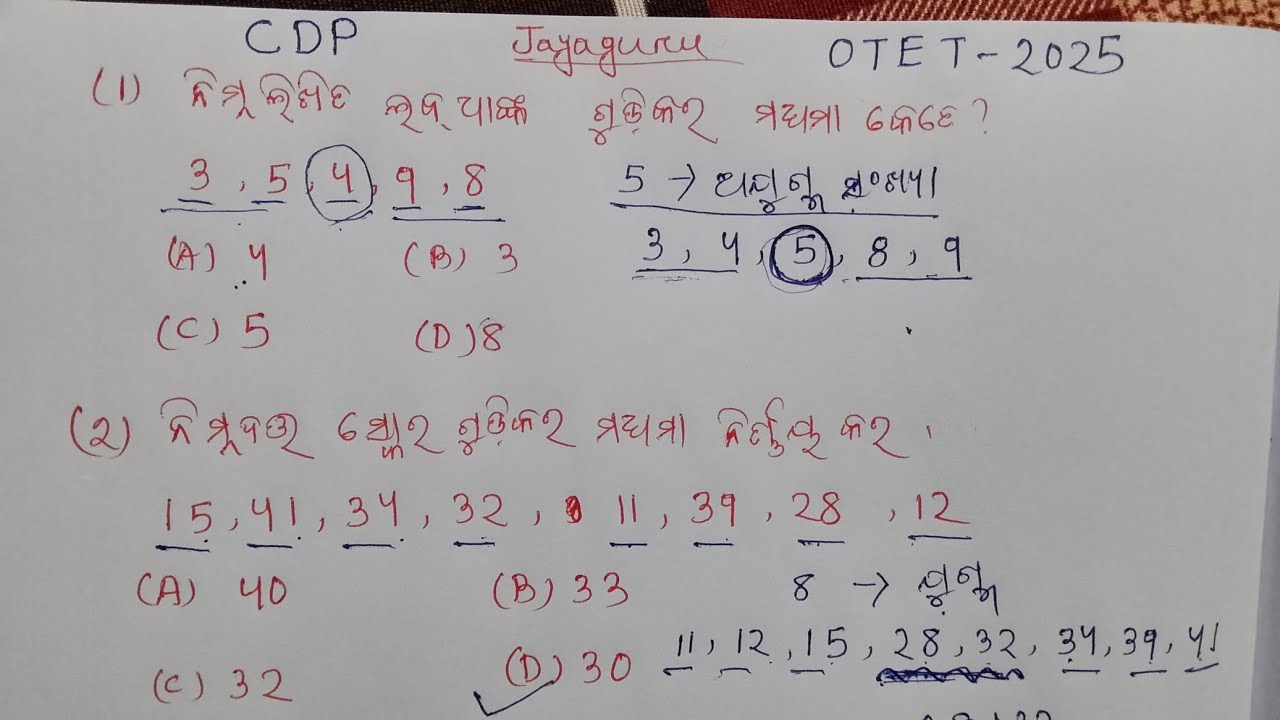 CDP Jayaguru OTET-2025
(1) ନିମ୍ନଲିଖିତ ଲବ୍ଧାଙ୍କ ଗୁଡ଼ିକର ମଧ୍ୟମା କେତେ ?
3, 5, 4, 9, 8
5 → ଅଯୁଗ୍ମ ସଂଖ୍ୟା
(A) 4 (B) 3
3, 4, 5, 8, 9
(C) 5 (D) 8
(2) ନିମ୍ନଦତ୍ତ ସ୍କୋର ଗୁଡ଼ିକର ମଧ୍ୟମା ନିର୍ଣ୍ଣୟ କର ।
15, 41, 34, 32, 11, 39, 28, 12
(A) 40 (B) 33
8 → ଯୁଗ୍ମ
11, 12, 15, 28, 32, 34, 39, 41
(C) 32 (D) 30